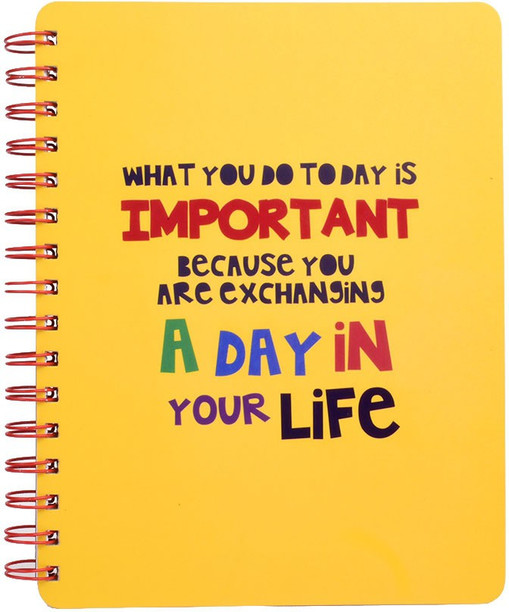 WHAT YOU DO TODAY iS
IMPORTANT
BECAUSE YOU
ARE EXCHANGiNG
A DAY iN
YOUR LiFE